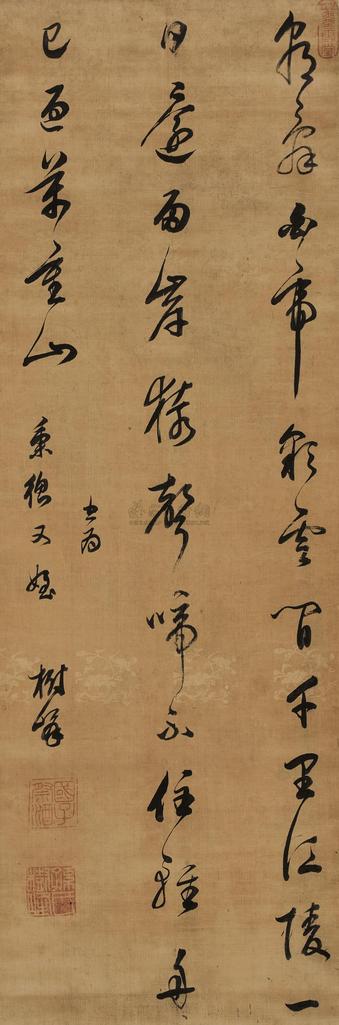 朝辭白帝彩雲間千里江陵一
日還兩岸猿聲啼不住輕舟
已過萬重山
書為
秉德又姪
樹峰
國子祭酒